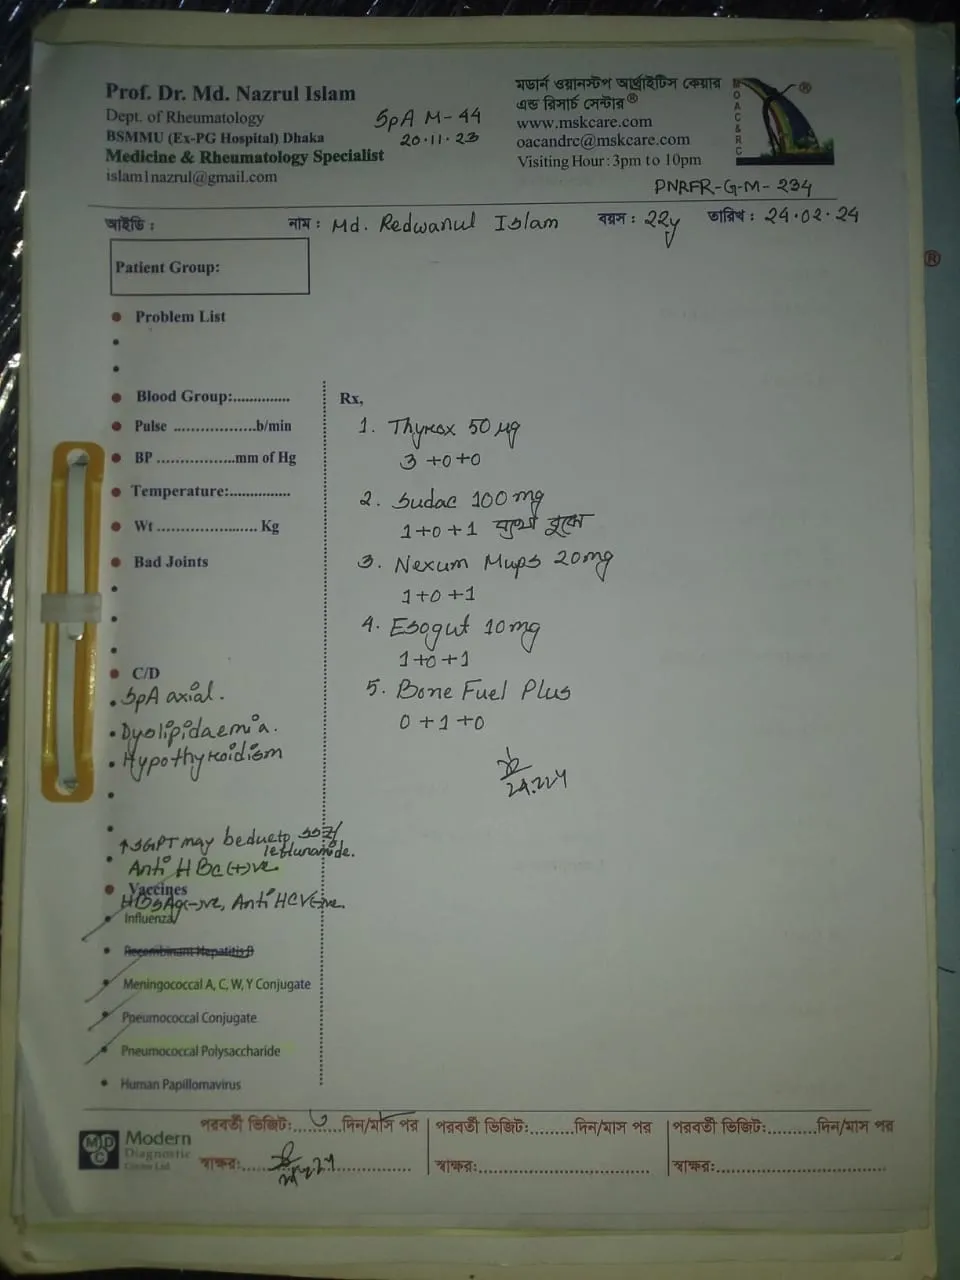 Prof. Dr. Md. Nazrul Islam
Dept. of Rheumatology
BSMMU (Ex-PG Hospital) Dhaka
Medicine & Rheumatology Specialist
islam1nazrul@gmail.com
SpA M-44
20.11.23
মডার্ন ওয়ানস্টপ আর্থ্রাইটিস কেয়ার
এন্ড রিসার্চ সেন্টার®
www.mskcare.com
oacandrc@mskcare.com
Visiting Hour : 3pm to 10pm
MOAC&RC
®
PNRFR-G-M-234
আইডি : নাম : Md. Redwanul Islam বয়স : 22y তারিখ : 24.02.24
Patient Group:
Problem List
Blood Group:..............
Pulse .................b/min
BP .................mm of Hg
Temperature:...............
Wt ..................... Kg
Bad Joints
C/D
SpA axial.
Dyslipidaemia.
Hypothyroidism
↑SGPT may be due to
leflunamide.
Anti HBc (+)ve
Vaccines
HBsAg(-)ve, Anti HCV(-)ve.
Influenza
Recombinant Hepatitis B
Meningococcal A, C, W, Y Conjugate
Pneumococcal Conjugate
Pneumococcal Polysaccharide
Human Papillomavirus
Rx,
1. Thyrox 50 µg
3 +0 +0
2. Sudac 100 mg
1+0+1
3. Nexum Mups 20mg
1+0+1
4. Esogut 10mg
1+0+1
5. Bone Fuel Plus
0 +1 +0
Modern
Diagnostic
Centre Ltd.
MDC
পরবর্তী ভিজিট:....৩....দিন/মাস পর
স্বাক্ষর:
পরবর্তী ভিজিট:.........দিন/মাস পর
স্বাক্ষর:
পরবর্তী ভিজিট:.........দিন/মাস পর
স্বাক্ষর: